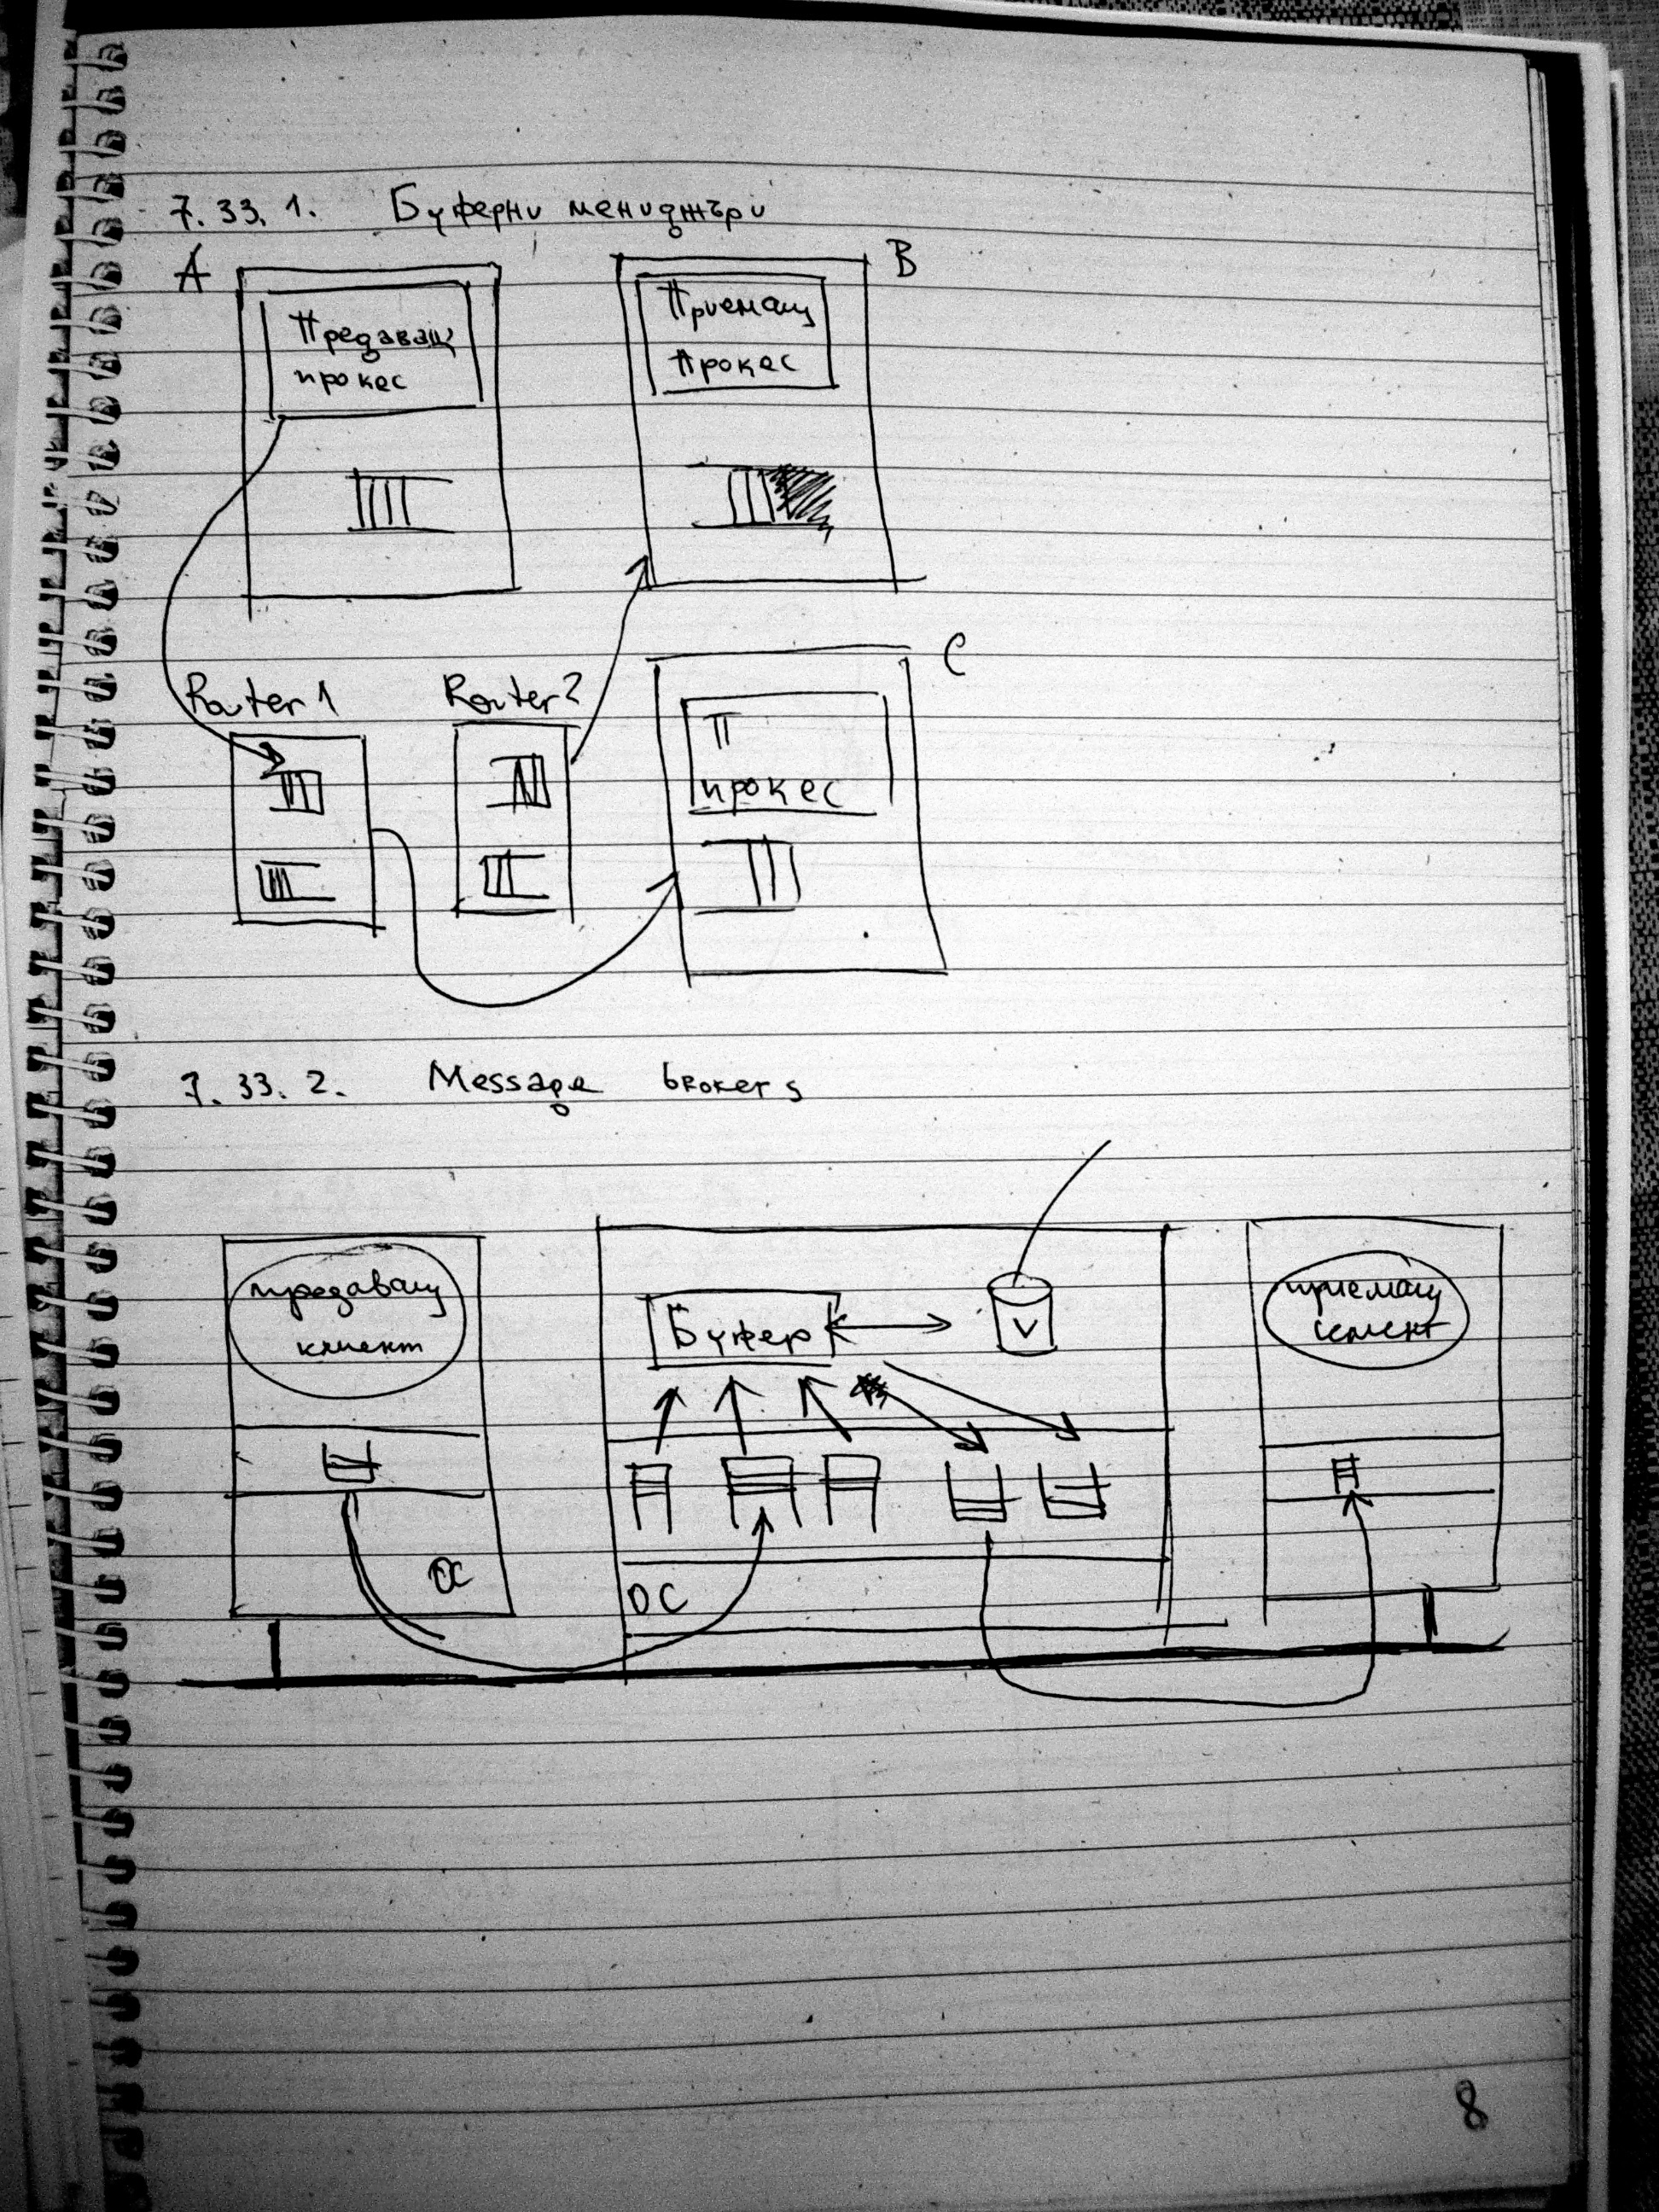 7.33.1. Буферни мениджъри
A
B
Предаващ
прокес
Приемащ
Прокес
C
Router 1
Router 2
П
прокес
7.33.2. Message brokers
предаващ
клиент
Буфер
V
приемащ
ОС
ОС
8